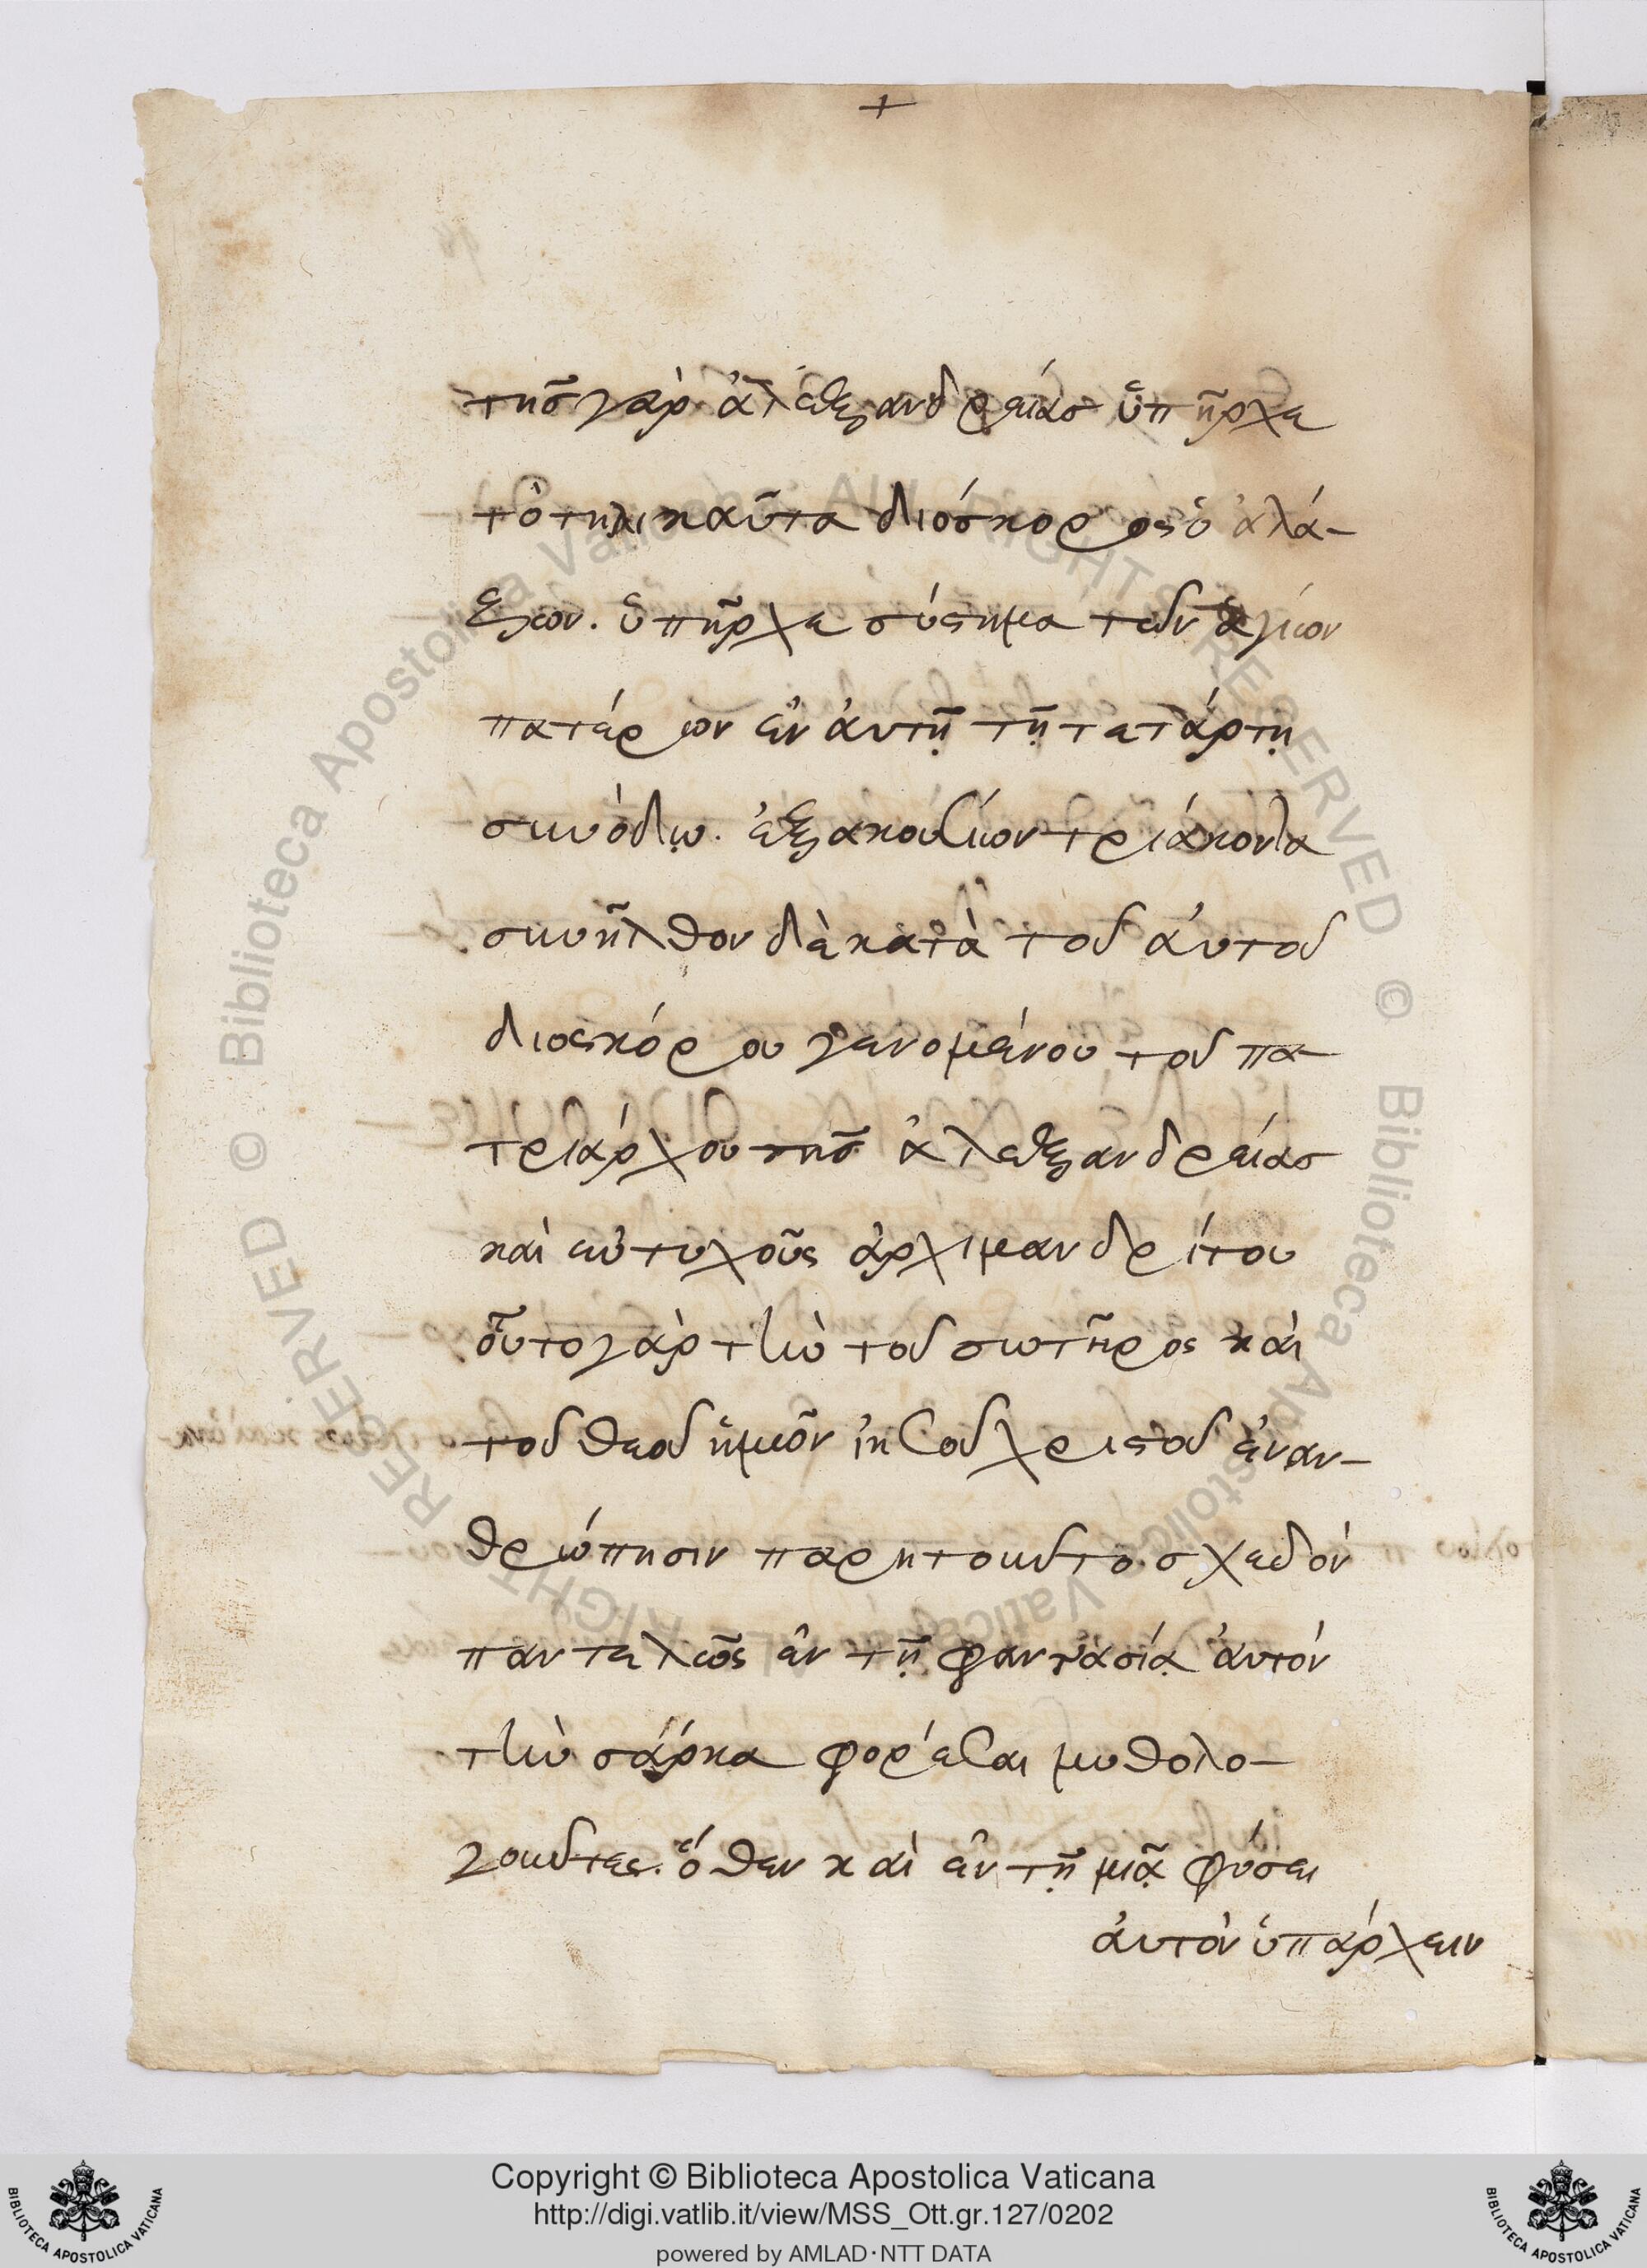 +
τῆσ γὰρ ἀλεξανδρείασ ὑπῆρχε
τὸτηλικαῦτα διόσκορος ὁ ἀλά-
ξων. ὑπῆρχε σύστημα τῶν ἁγίων
πατέρων ἐν ἀυτῆ τῆ τετάρτη
συνόδω. ἑξακοσίων τριάκοντα
συνῆλθον δὲ κατὰ τοῦ ἀυτοῦ
διοσκόρου γενομένου τοῦ πα-
τριάρχου τῆσ ἀλεξανδρείασ
καὶ εὐτυχοῦς ἀρχιμανδρίτου
οὗτο γὰρ τὴν τοῦ σωτῆρος καὶ
τοῦ θεοῦ ἡμῶν ἰησοῦ χριστοῦ ἐναν-
θρώπησιν παρητοῦντο σχεδὸν
παντελῶς ἐν τῆ φαντασία ἀυτὸν
τὴν σάρκα φορέσαι μυθολο-
γοῦντες. ὅθεν καὶ ἐν τῆ μιᾶ φύσει
ἀυτὸν ὑπάρχειν
Copyright © Biblioteca Apostolica Vaticana
http://digi.vatlib.it/view/MSS_Ott.gr.127/0202
powered by AMLAD·NTT DATA
BIBLIOTECA APOSTOLICA VATICANA
BIBLIOTECA APOSTOLICA VATICANA
© Biblioteca Apostolica Vaticana ALL RIGHTS RESERVED © Biblioteca Apostolica Vaticana ALL RIGHTS RESERVED